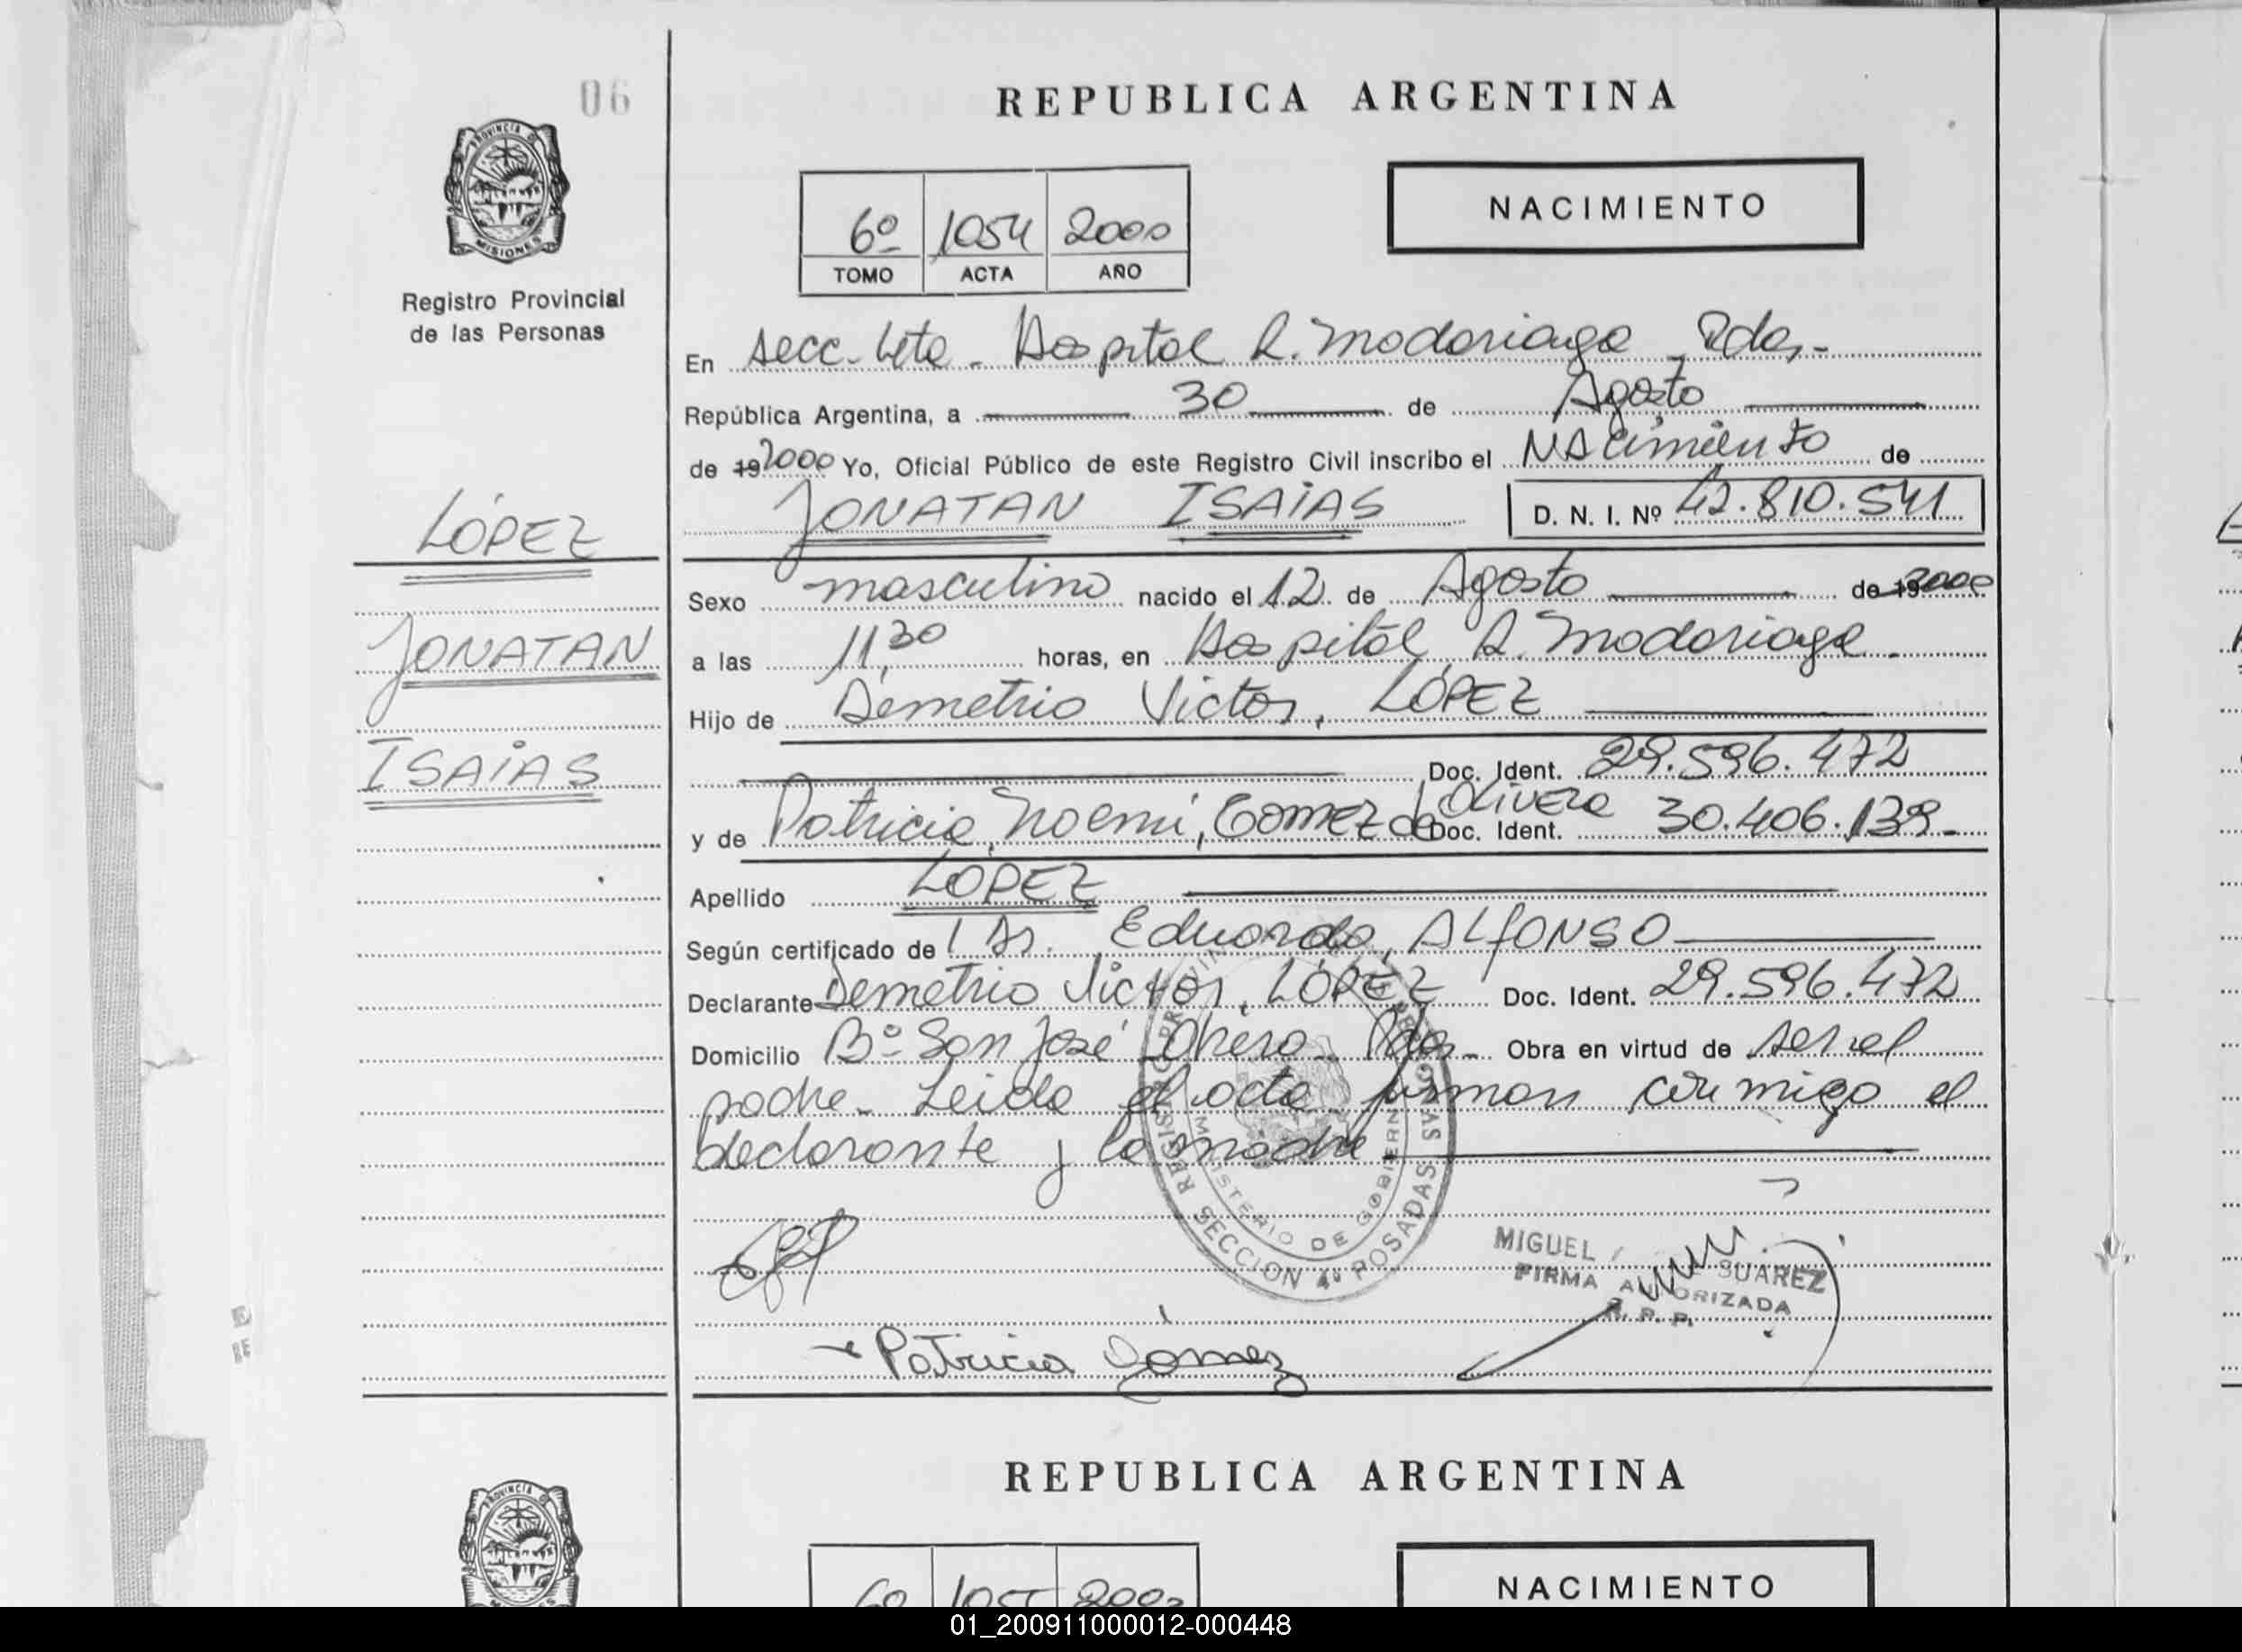 06
REPUBLICA ARGENTINA
PROVINCIA DE
MISIONES
Registro Provincial
de las Personas
6º 1054 2000
TOMO ACTA AÑO
NACIMIENTO
En Secc. 4ta - Hospital R. Madariaga, Pdas.-
República Argentina, a 30 de Agosto
de 19 2000 Yo, Oficial Público de este Registro Civil inscribo el NACimiento de
JONATAN ISAÍAS D. N. I. Nº 42.810.541
LÓPEZ
JONATAN
ISAÍAS
Sexo masculino nacido el 12 de Agosto de 19 2000
a las 11,30 horas, en Hospital R. Madariaga.
Hijo de Demetrio Victor, LÓPEZ
Doc. Ident. 29.596.472
y de Patricia Noemí, Gomez de Olivera Doc. Ident. 30.406.139.-
Apellido LÓPEZ
Según certificado de Dr. Eduardo, ALfONSO
Declarante Demetrio Victor, LÓPEZ Doc. Ident. 29.596.472
Domicilio Bº San José Pdas.- Obra en virtud de ser el
padre.- Leida el acta firman conmigo el
declarante y la madre
MINISTERIO DE GOBIERNO
SECCION 4º POSADAS
MIGUEL SUAREZ
FIRMA AUTORIZADA
R. P. P.
Patricia Gómez
REPUBLICA ARGENTINA
PROVINCIA DE
6º 1055 2000
NACIMIENTO
01_200911000012-000448